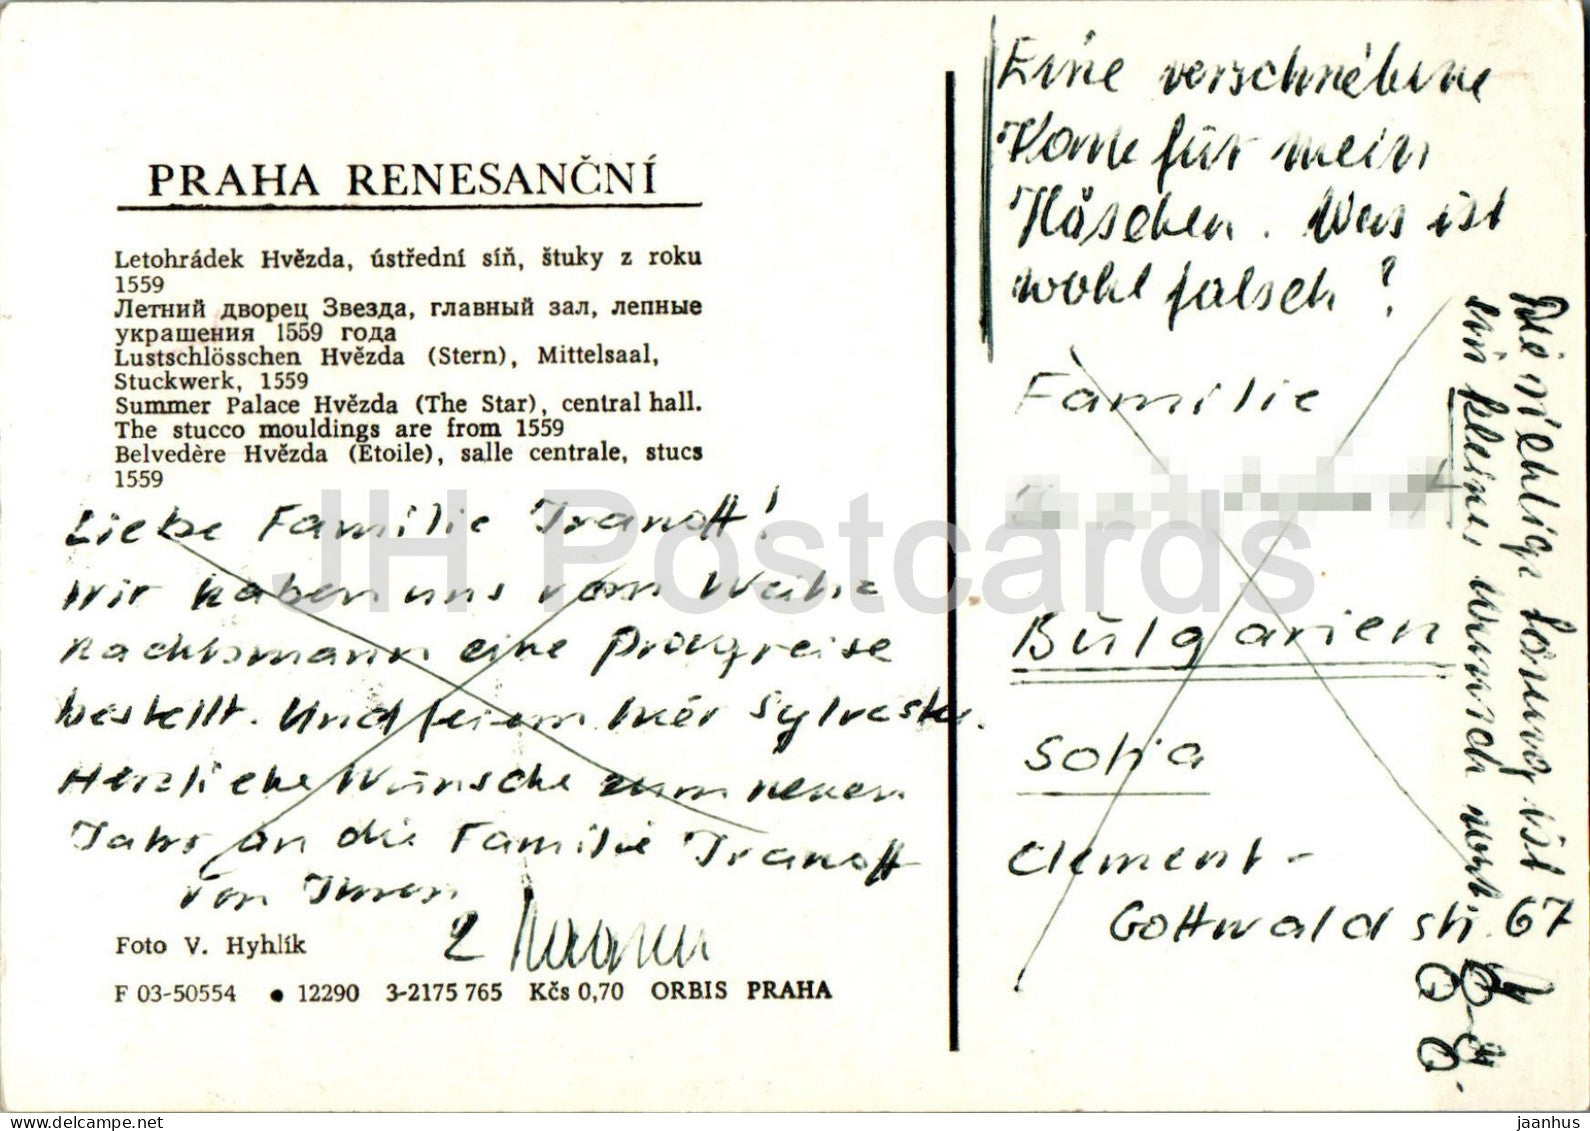 PRAHA RENESANČNÍ
Letohrádek Hvězda, ústřední síň, štuky z roku
1559
Летний дворец Звезда, главный зал, лепные
украшения 1559 года
Lustschlösschen Hvězda (Stern), Mittelsaal,
Stuckwerk, 1559
Summer Palace Hvězda (The Star), central hall.
The stucco mouldings are from 1559
Belvedère Hvězda (Etoile), salle centrale, stucs
1559
Liebe Familie Ivanoff!
Wir haben uns vom Weih=
nachtsmann eine Pragreise
bestellt. Und feiern hier Sylvester.
Herzliche Wünsche zum neuen
Jahr an die Familie Ivanoff
von Ihren
Foto V. Hyhlík
F 03-50554 • 12290 3-2175 765 Kčs 0,70 ORBIS PRAHA
Eine verschriebene
Karte für mein
Häschen. Was ist
wohl falsch?
Familie
Bulgarien
Sofia
Clement-
Gottwald str. 67
Die richtige Lösung ist
ein kleiner Wunsch wert.
JH Postcards
delcampe.net
jaanhus